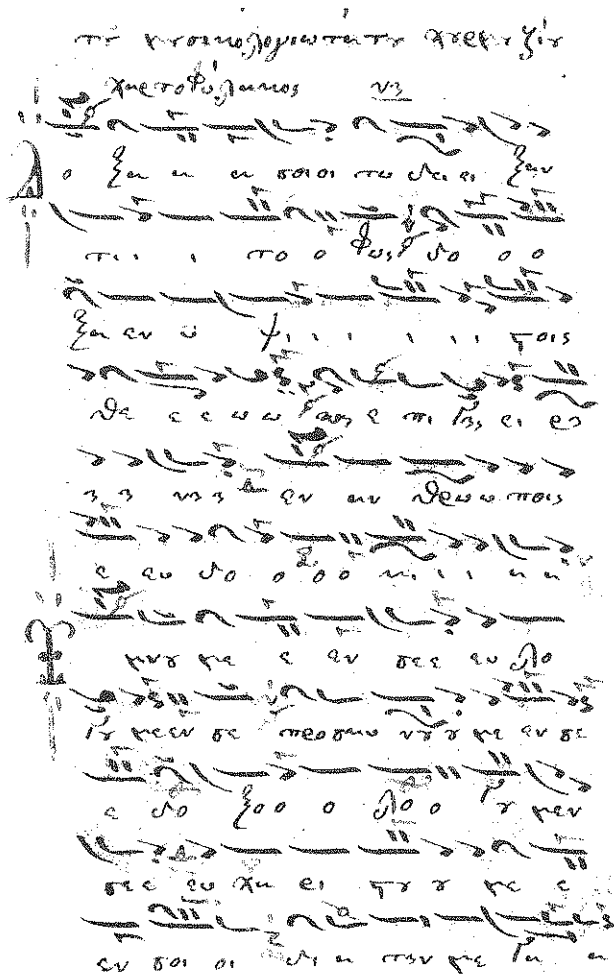 τȣ μȣσικολογιωτάτȣ Χȣρμȣζίȣ
Χαρτοφύλακος νη
Δ ο ξα α α σοι οι τω δει ει ξαν
τι ι ι το ο φως δο ο ο
ξα εν υ ψι ι ι ι ι ι τοις
θε ε ε ω ω και ε πι γης ει ρη
η η νη η εν αν θρω ω ποις
ε ευ δο ο ο ο κι ι ι α α
Υ μνȣ με ε εν σε ε ευ λο
γȣ με εν σε προσκυ νȣ ȣ με εν σε
ε δο ξο ο ο λο ο γȣ μεν
σε ε ευ χα ρι στȣ ȣ με ε
εν σοι οι δι α την με γα α